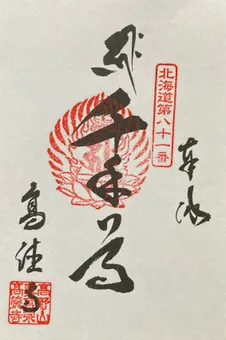 北海道第八十一番
奉拝
千手尊
高 寺
高野山